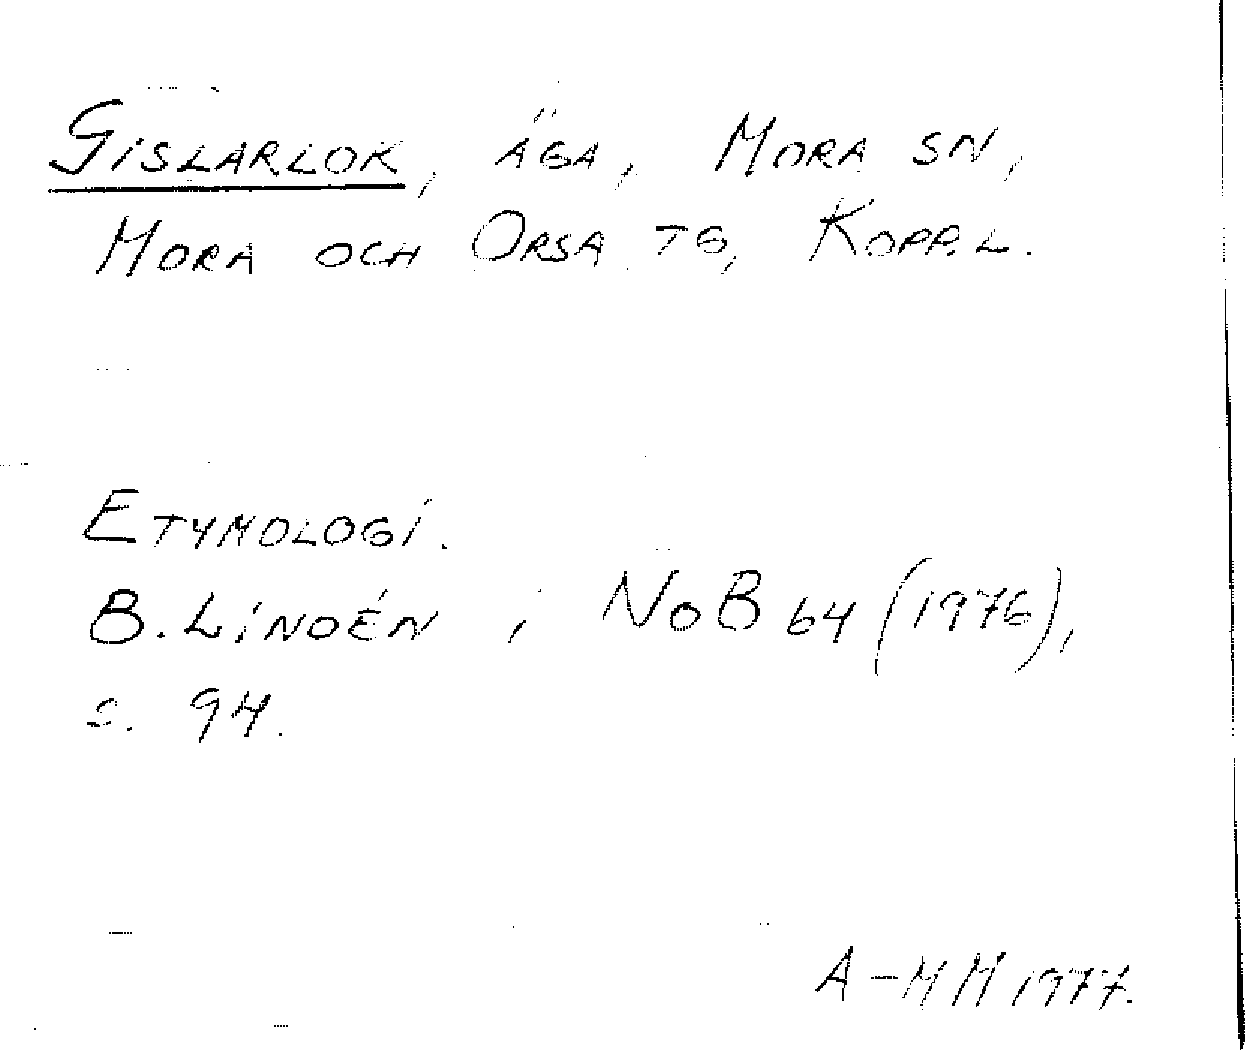 GISLARLOK, ÄGA, MORA SN,
MORA OCH ORSA TG, KOPP.L.
ETYMOLOGI.
B. LINDÉN i NOB 64 (1976),
S. 94.
A-MM 1977.